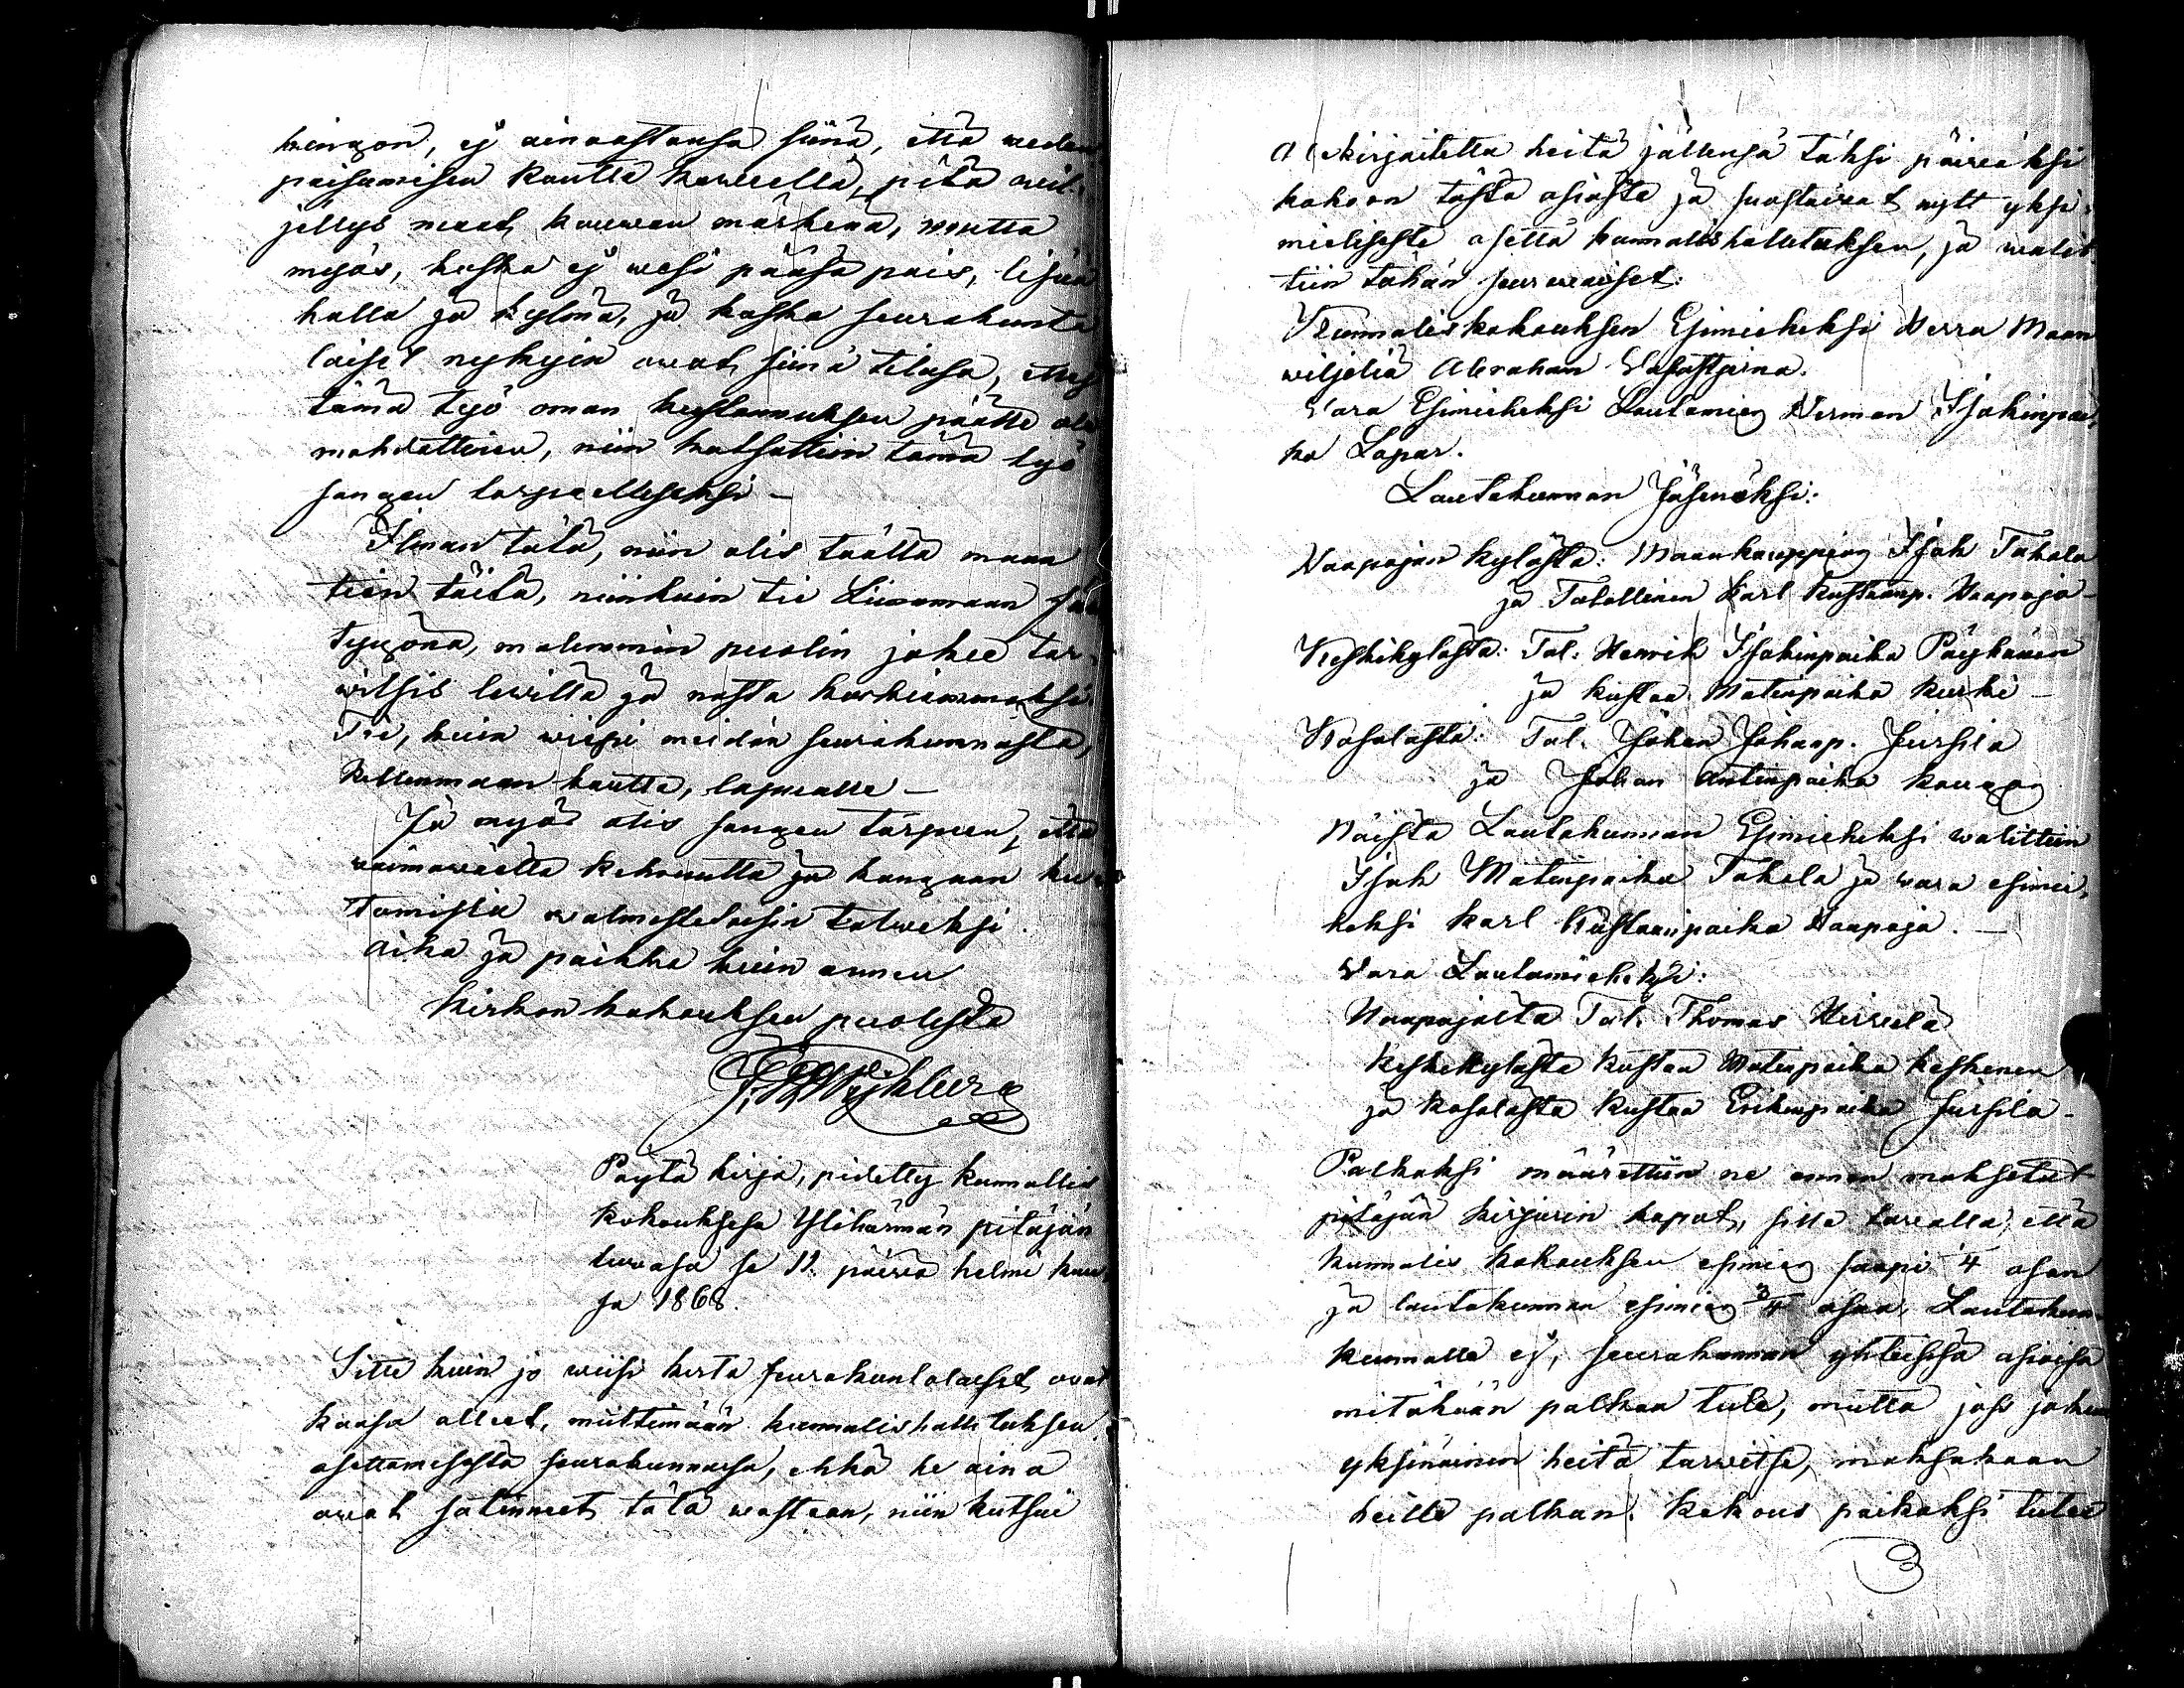 ej ainoastansa siinä, että weden
paisumisen kautta kewällä, pitä wil-
jellys maat, kauwan märkenä, mutta
myös, koska ej wesi pääsä pois, lisää
halla ja kylmä, ja koska seurakunta
laiset nykyin owat, siinä tilasa, ettej
tämä työ oman kustannuksen päälle ole
mahdollinen, niin katsottiin tämä työ
sangen tarpeelliseksi —
Ilman tätä, niin olis täällä maan
tien töitä, niinkuin tie Liinamaan
molemmin puolin jokee tar-
witsis lewittä ja nosta korkiammaksi
Tie, kuin wiepi meidän seurakunnasta,
kautta, lapualle —
Ja myös olis sangen tarpeen, että
waimawäellä kehruutta ja kangaan ku-
tomista walmistetaisin talweksi.
Aika ja paikka kuin ennen
Kirkon kokouksen puolesta
Pöytä kirja, pidetty kunnallis
kokouksesa Ylihärmän pitäjän
tuwasa se 11. päiwä helmi kuu
sa 1868.
Sitte kuin jo wiisi kerta seurakuntalaiset, owat
koosa olleet, miettimään kunnalishallituksen
asettamisesta seurakunnassa, ehkä he aina
owat sotinneet, tätä wastaan, niin kutsui
kirjoitettu heitä jällensä täksi päiwäksi
kokoon tästä asiasta ja suostuiwat nytt yksi-
mielisesti asetta kunnalishallituksen, ja walit
tiin tähän seurawaiset:
Kunnaliskokouksen Esimieheksi Herra Maan
wiljeliä Abraham Wasastjerna.
Wara Esimieheksi Lautamies Herman Isakinpoi-
ka Lapar.
Lautakunnan Jäseneksi:
Haapojan kylästä: Maankauppias Isak Takala
ja Talollinen Karl Kustaanp. Haapoja —
Keskikylästä: Tal. Henrik Isakinpoika Päykkänen
ja Kustaa Matinpoika Kurki —
Kosolasta: Tal. Johan Johanp. Jussila
ja Johan Antinpoika
Näistä Lautakunnan Esimieheksi walittiin
Isak Matinpoika Takala ja wara esimie-
heksi Karl Kustaanpoika Haapoja. —
Wara Lautamieheksi:
Haapojalta Tal. Thomas
Keskikylästä Kustaa Matinpoika Keskinen
ja Kosolasta Kustaa Erikinpoika Jussila —
Palkaksi määrettiin ne ennen maksetut
pitäjän kirjurin kapat, sillä tawalla, että
kunnalis kokouksen esimies saapi 1/4 osan
ja lautakunnan esimies 3/4 osaa. Lautakun-
kunnalle ej, seurakunnan yhteisissä asioisa
mitäkään palkaa tule, mutta jos joku
yksinäinen heitä tarwitse, maksakaan
heille palkan. Kokous paikaksi tulee